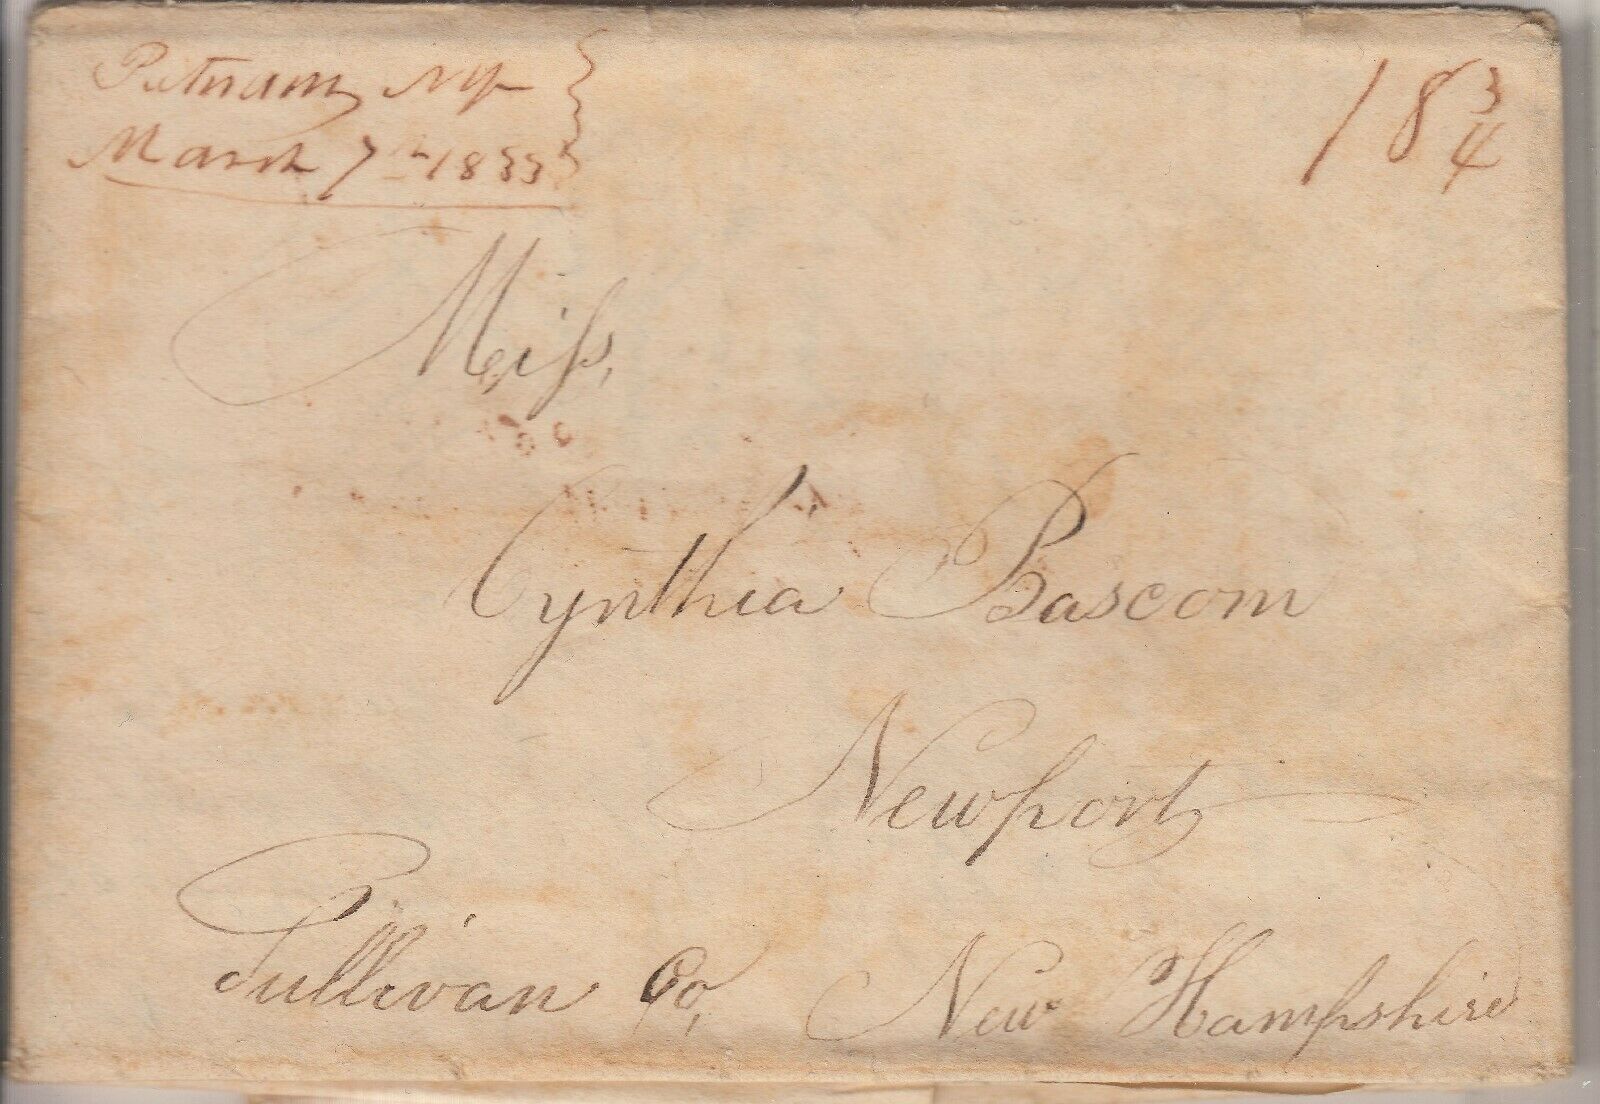 Putnam, NY
March 7th 1833
18 3/4
Miss,
Cynthia Bascom
Newport,
Sullivan Co, New Hampshire